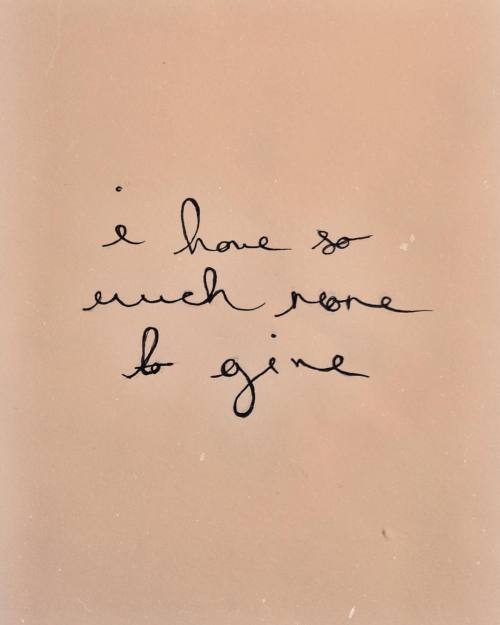 i have so
much more
to give